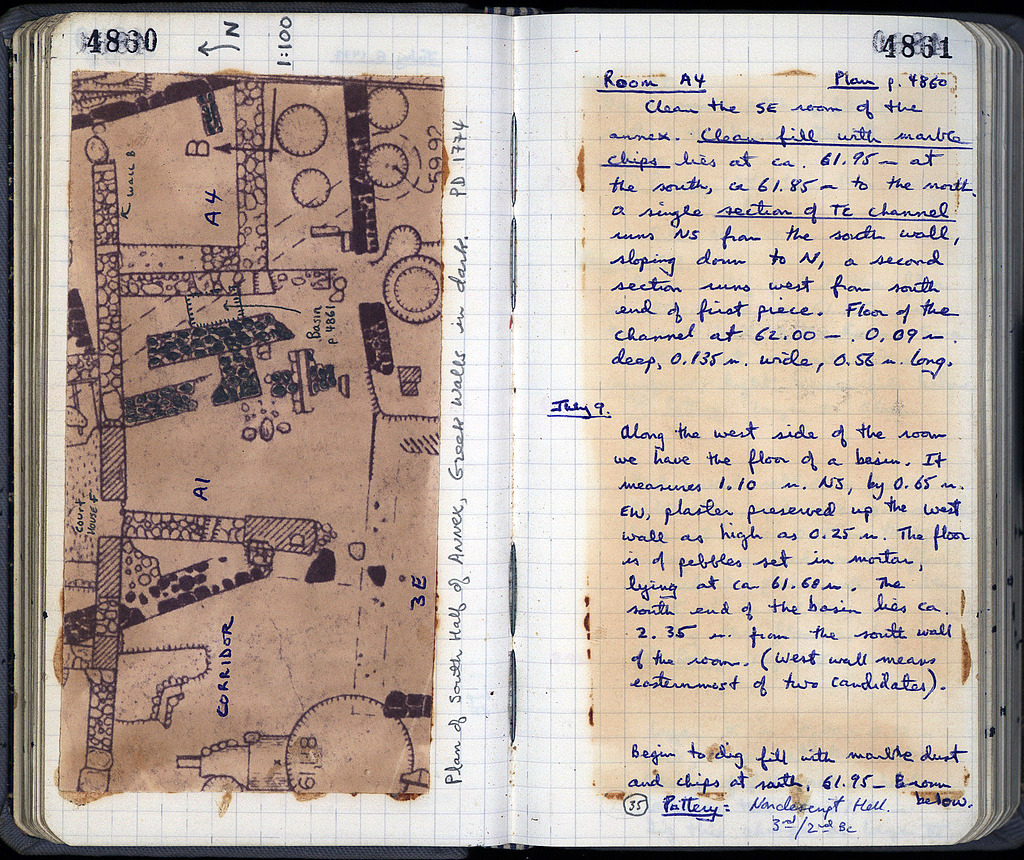 4860
N
1:100
B
wall B
A4
5992
Basin
p 4861
A1
Court
House F
3E
CORRIDOR
61.48
Plan of South Half of Annex, Greek walls in dark. PD 1774
4861
Room A4 Plan p. 4860
Clean the SE room of the
annex. Clean fill with marble
chips lies at ca. 61.95 m at
the south, ca 61.85 m to the north.
A single section of TC channel
runs NS from the south wall,
sloping down to N, a second
section runs west from south
end of first piece. Floor of the
channel at 62.00 – 0.09 m.
deep, 0.135 m. wide, 0.56 m. long.
July 9.
Along the west side of the room
we have the floor of a basin. It
measures 1.10 m. NS, by 0.65 m.
EW, plaster preserved up the west
wall as high as 0.25 m. The floor
is of pebbles set in mortar,
lying at ca 61.68 m. The
south end of the basin lies ca.
2.35 m. from the south wall
of the room. (West wall means
easternmost of two candidates).
Begin to dig fill with marble dust
and chips at south, 61.95 – Brown
below.
35 Pottery: Nondescript Hell.
3rd/2nd BC